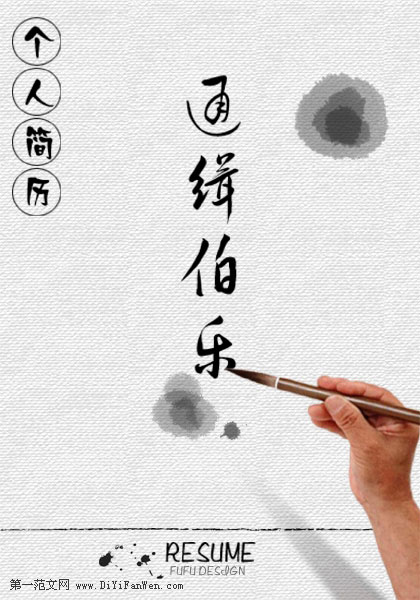 个人简历
通缉伯乐
RESUME
FUFU DESIGN
第一范文网 www.DiYiFanWen.com